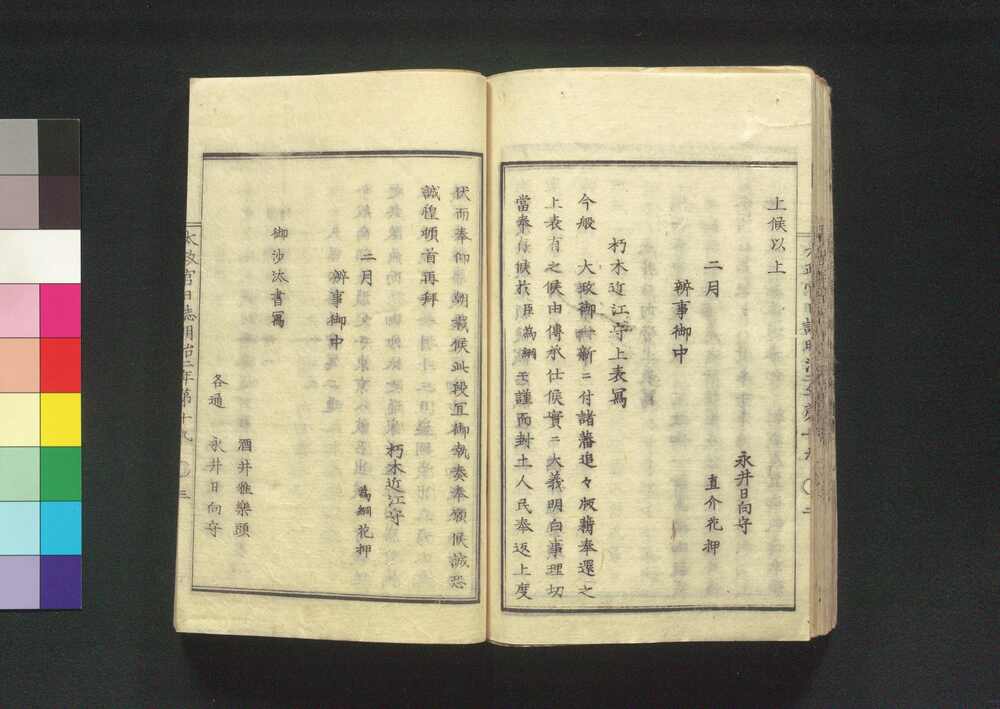 上候以上
二月
永井日向守
直介花押
辨事御中
朽木近江守上表寫
今般 大政御一新ニ付諸藩追々版籍奉還之
上表有之候由傳承仕候實ニ大義明白事理切
當奉存候於臣為綱モ謹而封土人民奉返上度
伏而奉仰 朝裁候此段宜御執奏奉願候誠恐
誠惶頓首再拜
二月
朽木近江守
為綱花押
辨事御中
御沙汰書寫
酒井雅樂頭
各通 永井日向守
太政官日誌明治二年第十九 三